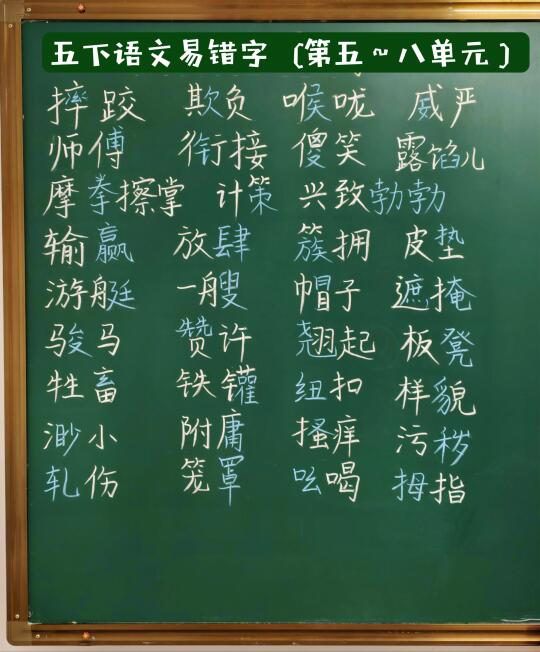 五下语文易错字 (第五~八单元)
摔跤 欺负 喉咙 威严
师傅 衔接 傻笑 露馅儿
摩拳擦掌 计策 兴致勃勃
输赢 放肆 簇拥 皮垫
游艇 一艘 帽子 遮掩
骏马 赞许 翘起 板凳
牲畜 铁罐 纽扣 样貌
渺小 附庸 搔痒 污秽
轧伤 笼罩 吆喝 拇指